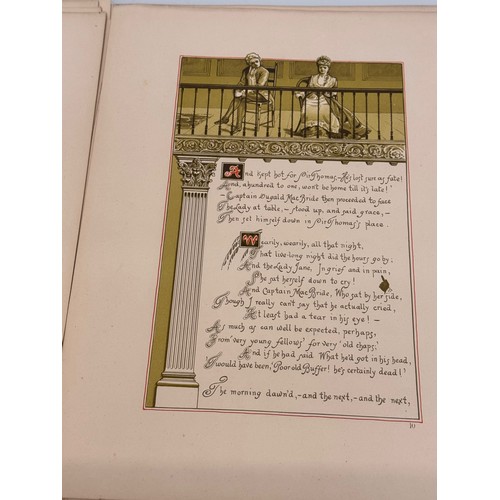 And kept hot for Sir Thomas,-He's lost sure as fate!
And, a hundred to one, won't be home till it's late!'
-Captain Dugald MacBride then proceeded to face
The Lady at table,- stood up, and said grace,-
Then set himself down in Sir Thomas's place.
Wearily, wearily, all that night,
That live-long night did the hours go by;
And the Lady Jane, In grief and in pain,
She sat herself down to cry!
And Captain MacBride, Who sat by her side,
Though I really can't say that he actually cried,
At least had a tear in his eye! -
As much as can well be expected, perhaps,
From 'very young fellows' for very 'old chaps;'
And if he had said What he'd got in his head,
'Twould have been, 'Poor old Buffer! he's certainly dead!'
The morning dawn'd,-and the next,-and the next,
10